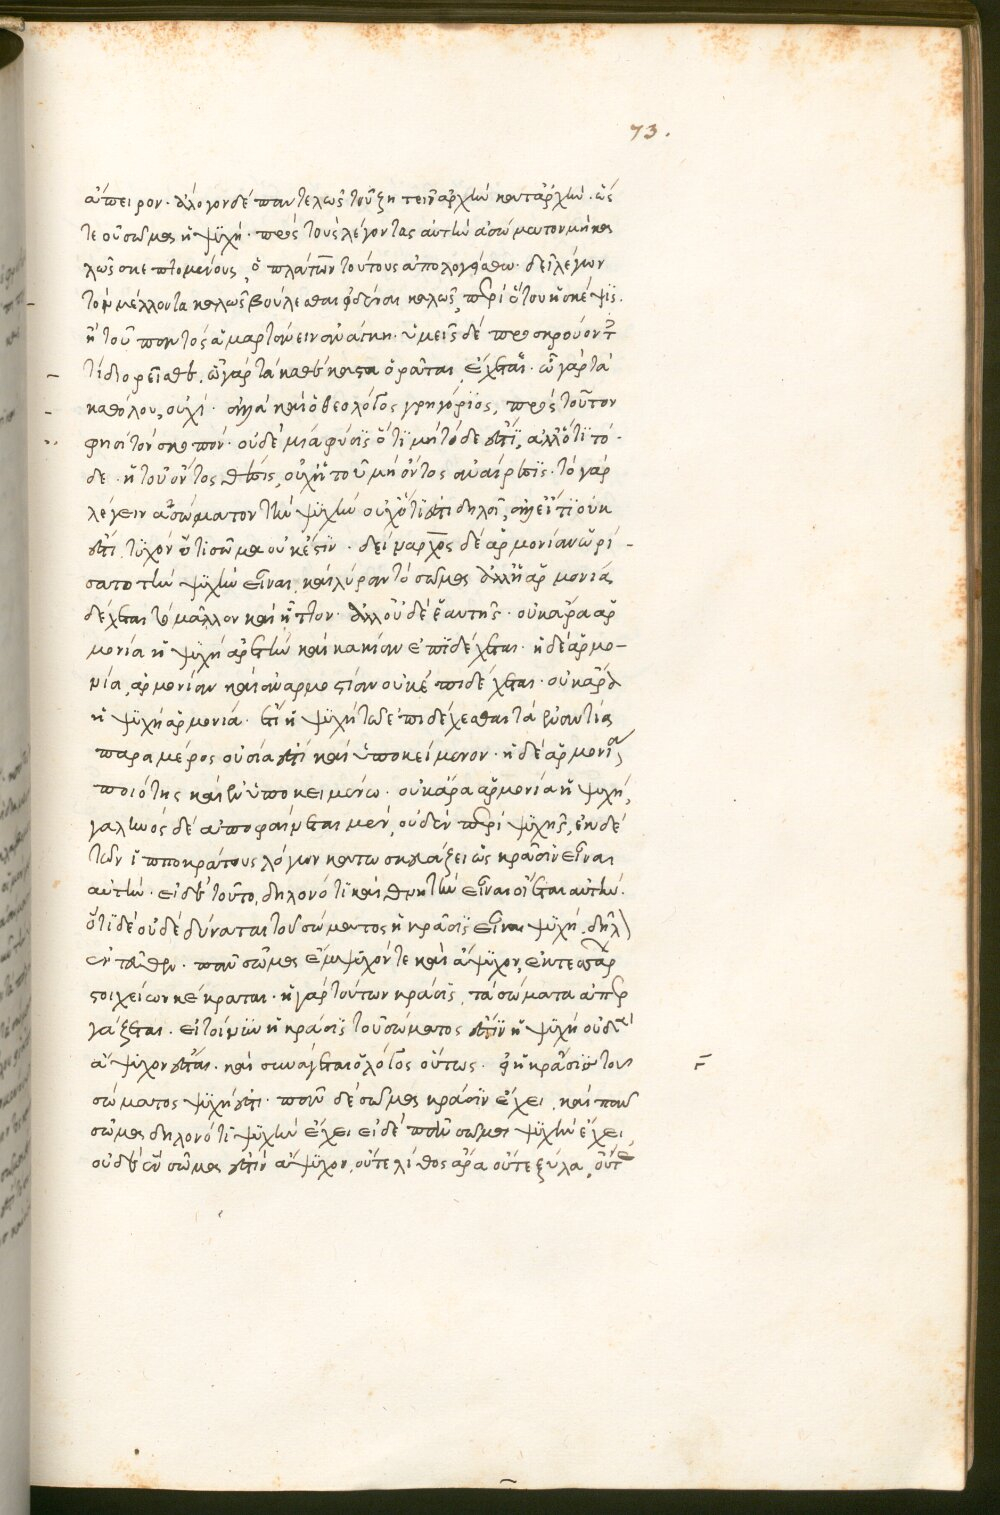 73.
ἄπειρον· ἄλογον δέ παντελῶς τοῦ ζητεῖν ἀρχὴν κατ' ἀρχὴν· ὥς
τε οὐ σῶμα ἡ ψυχή· πρὸς τοὺς λέγοντας αὐτὴν ἀσώματον μὴ κα
λῶς σκεπτομένους, ὁ πλάτων τούτους ἀπολογείσθω· δεῖ λέγων
τὸν μέλλοντα καλῶς βούλεσθαι εἰδέναι καλῶς, περὶ ὅτου ἡ σκέψις·
ἢ τοῦ παντὸς ἁμαρτάνειν ἀνάγκη· ὑμεῖς δέ προσκρούοντ
τί διορεῖσθε, ὧν γάρ τὰ καθέκαστα ὁρᾶται ἔχεται· ὧν γάρ τὰ
καθόλου, οὐχί· ἀλλὰ καὶ ὁ θεολόγος γρηγόριος, πρὸς τοῦτον
φησὶ τὸν σκοπόν· οὐδὲ μιᾷ φύσις ὅτι μὴ τόδε ἐστὶ, ἀλλ' ὅτι τό-
δε· ἡ τοῦ ὄντος θέσις, οὐχ ἡ τοῦ μὴ ὄντος ἀναίρεσις· τὸ γάρ
λέγειν ἀσώματον τὴν ψυχὴν οὐχ ὅτι ἐστὶ δηλοῖ, ἀλλ' εἴ τι οὐκ
ἐστὶ τυχὸν ὅτι σῶμα οὐκ ἔστιν· δείναρχος δέ ἁρμονίαν ὡρί-
σατο τὴν ψυχὴν εἶναι, καὶ λύραν τὸ σῶμα ἀλλ' ἡ ἁρμονία
δέχεται τὸ μᾶλλον καὶ ἧττον· ἀλλ' οὐδέ ἑαυτῆς· οὐκ ἄρα ἁρ
μονία ἡ ψυχὴ ἀρετὴν καὶ κακίαν ἐπιδέχεται· ἡ δέ ἁρμο-
νία, ἁρμονίαν καὶ ἀναρμοστίαν οὐκ ἐπιδέχεται· οὐκ ἄρα
ἡ ψυχὴ ἁρμονία· ἔτι ἡ ψυχὴ τῷ δ' ἐπιδέχεσθαι τὰ ἐναντία
παρὰ μέρος οὐσία ἐστὶ καὶ ὑποκείμενον· ἡ δέ ἁρμονία
ποιότης καὶ ἐν ὑποκειμένω· οὐκ ἄρα ἁρμονία ἡ ψυχή,
γαληνὸς δέ ἀποφαίνεται μέν, οὐδέν περὶ ψυχῆς, ἐκ δέ
τῶν ἱπποκράτους λόγων κατωσκιάξει ὡς κρᾶσιν εἶναι
αὐτὴν· εἰ δὲ τοῦτο, δηλονότι καὶ θνητὴν εἶναι οἴεται αὐτὴν·
ὅτι δέ οὐδέ δύναται τοῦ σώματος ἡ κρᾶσις εἶναι ψυχή, δῆλ
ἐντεῦθεν· πᾶν σῶμα ἔμψυχόν τε καὶ ἄψυχον, ἐκ τεσσάρ
στοιχείων κέκραται· ἡ γάρ τούτων κρᾶσις, τὰ σώματα ἀπερ
γάζεται· εἰ τοίνυν ἡ κρᾶσις τοῦ σώματος ἐστὶν ἡ ψυχὴ οὐδὲν
ἄψυχον ἔσται· καὶ συνάγεται ὁ λόγος οὕτως· εἰ ἡ κρᾶσις τοῦ
σώματος ψυχὴ ἐστι· πᾶν δέ σῶμα κρᾶσιν ἔχει, καὶ πᾶν
σῶμα δηλονότι ψυχὴν ἔχει εἰ δέ πᾶν σῶμα ψυχὴν ἔχει,
οὐδέν σῶμα ἐστὶν ἄψυχον, οὔτε λίθος ἄρα οὔτε ξύλα, οὔτε